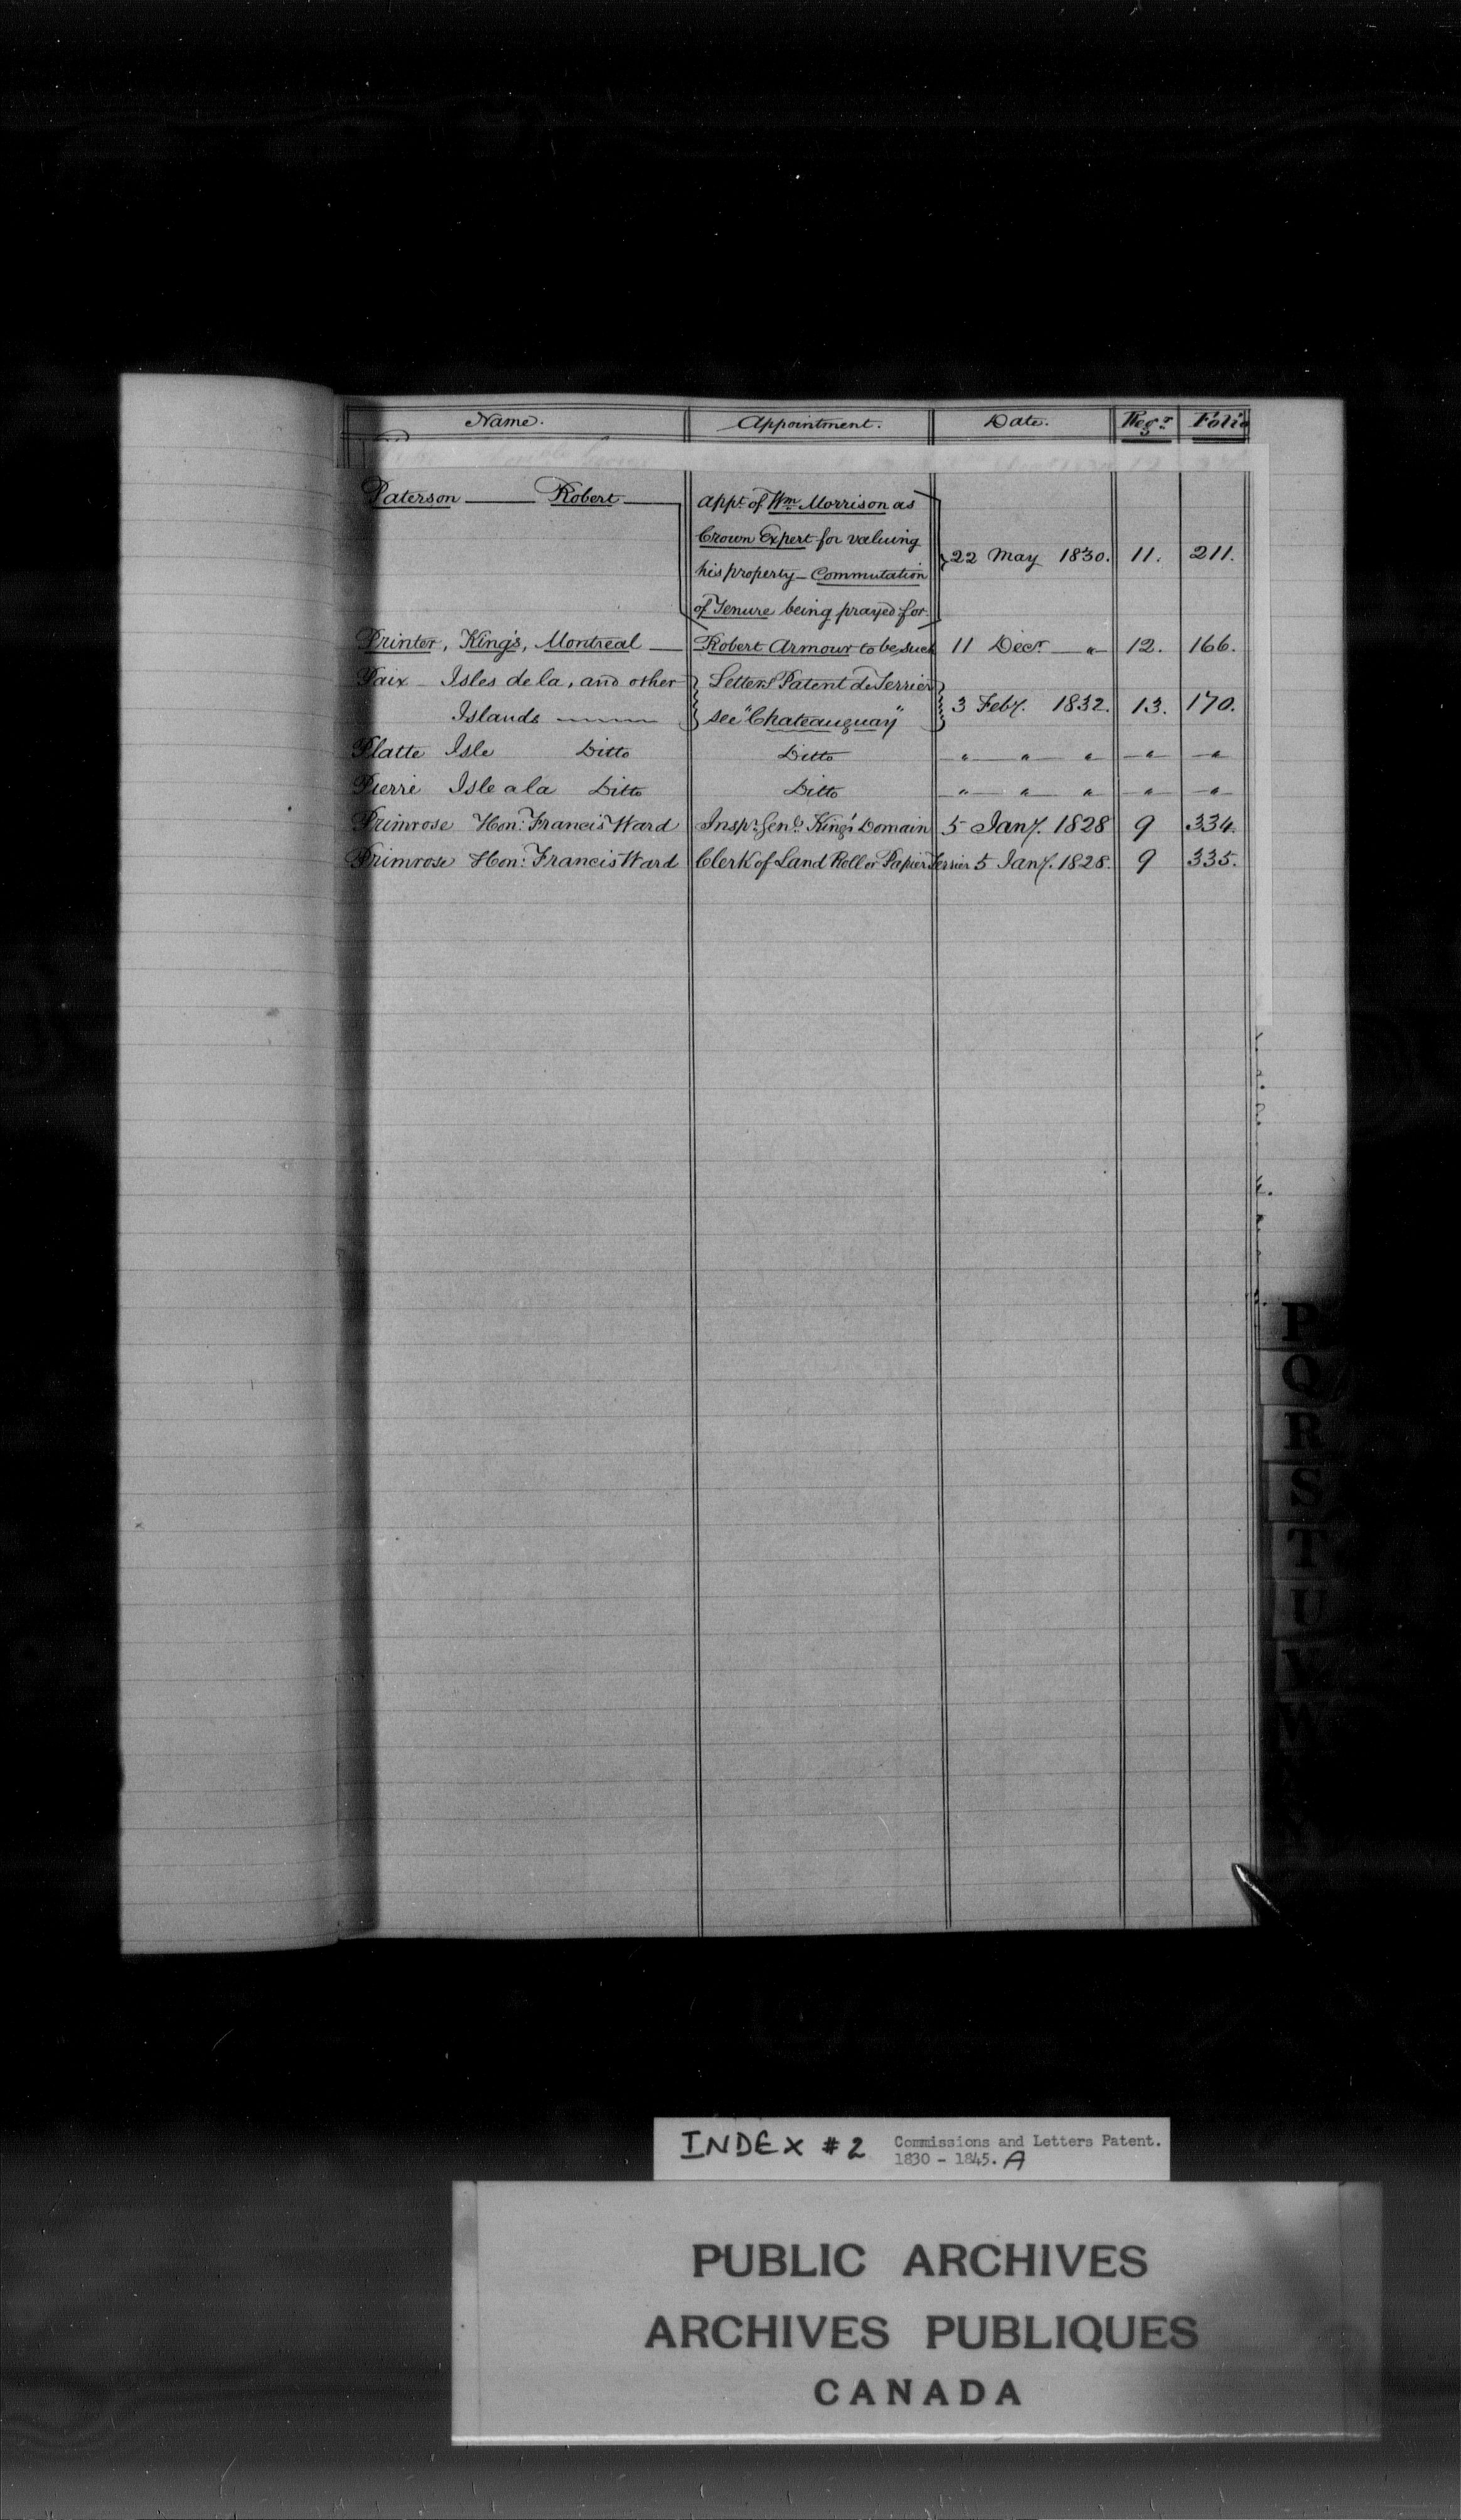 Name. Appointment. Date. Regr. Folio
Paterson Robert Appt. of Wm. Morrison as
Crown Expert for valuing
his property - Commutation 22 May 1830. 11. 211.
of Tenure being prayed for.
Printer, King's, Montreal Robert Armour to be such 11 Decr. " 12. 166.
Paix Isles de la, and other Letters Patent de Terrier
Islands see "Chateauguay" 3 Feby. 1832. 13. 170.
Platte Isle Ditto Ditto " " " " "
Pierre Isle a la Ditto Ditto " " " " "
Primrose Hon: Francis Ward Inspr. Genl. King's Domain 5 Jany. 1828 9 334.
Primrose Hon: Francis Ward Clerk of Land Roll or Papier Terrier 5 Jany. 1828. 9 335.
P
Q
R
S
T
U
V
W
INDEX #2 Commissions and Letters Patent.
1830 - 1845. A
PUBLIC ARCHIVES
ARCHIVES PUBLIQUES
CANADA